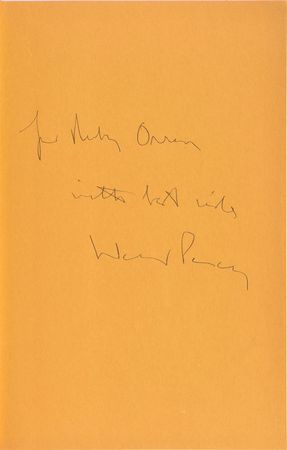 for Orren
with best wishes
Walker Percy